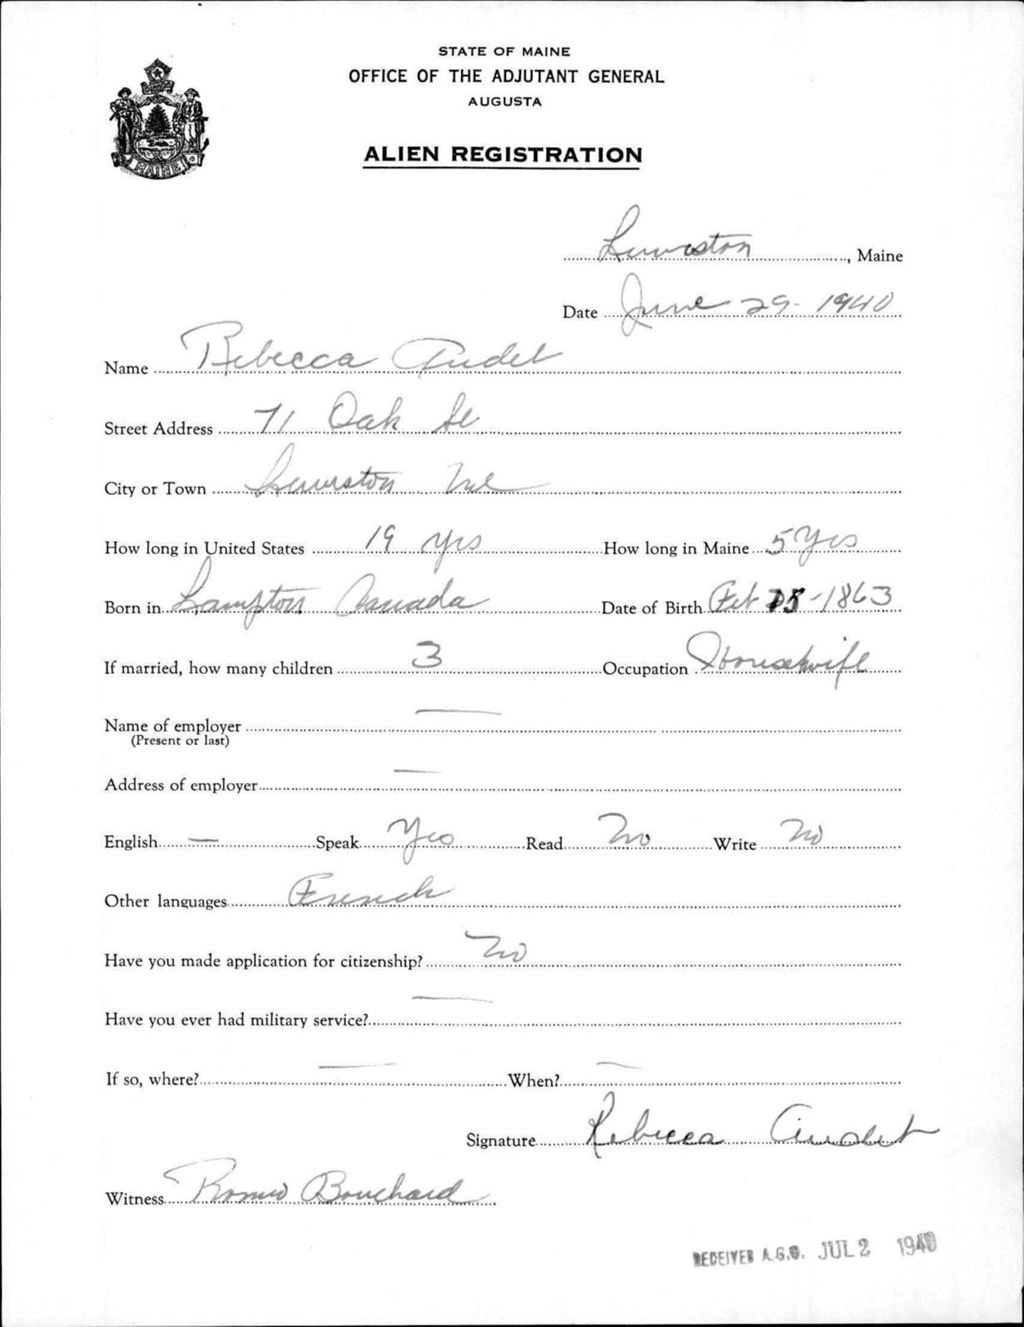 STATE OF MAINE
OFFICE OF THE ADJUTANT GENERAL
AUGUSTA
ALIEN REGISTRATION
MAINE
Lewiston, Maine
Date June 29 - 1940
Name Rebecca Audet
Street Address 71 Oak St
City or Town Lewiston Me
How long in United States 19 yrs How long in Maine 5 Yrs
Born in Lampton Canada Date of Birth Feb - 1863
If married, how many children 3 Occupation Housewife
Name of employer —
(Present or last)
Address of employer —
English — Speak Yes Read No Write No
Other languages French
Have you made application for citizenship? No
Have you ever had military service? —
If so, where? — When? —
Signature Rebecca Audet
Witness Romeo Bouchard
RECEIVED A.G.O. JUL 2 1940